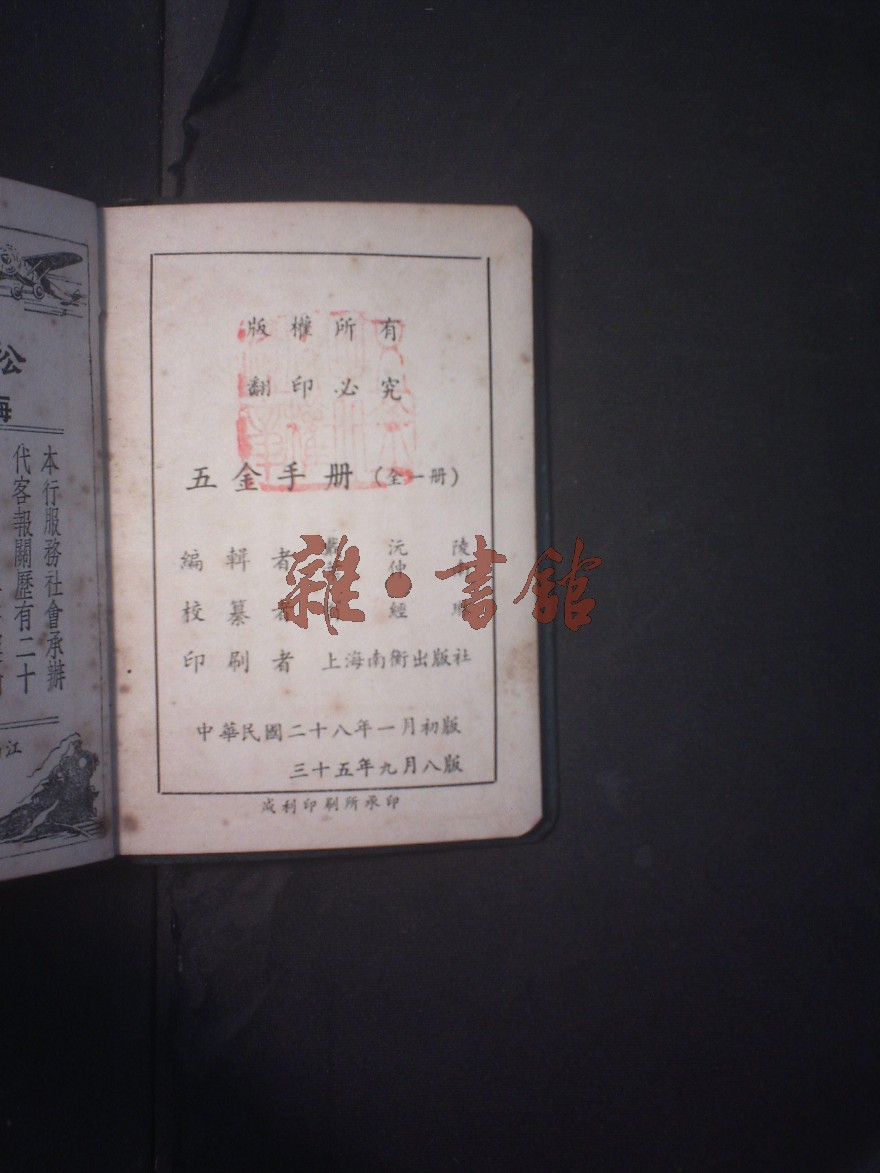 版權所有
翻印必究
五金手册(全一册)
編輯者 沅陵
仲
校纂者 經
印刷者 上海南衡出版社
中華民國二十八年一月初版
三十五年九月八版
成利印刷所承印
雜·書館
公
海
本行服務社會承辦
代客報關歷有二十
江